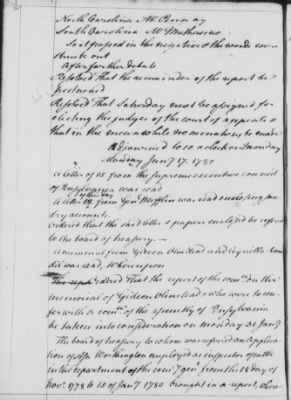 North Carolina Mr Penn ay
South Carolina Mr Mathews no
So it passed in the negative & the words were
struck out
After farther debate
Resolved That the remainder of the report be
postponed
Resolved That Saturday next be assigned for
electing the judges of the court of appeals &
that in the mean while nominations be made
Adjourned to 10 oClock on Monday
Monday Jany 17. 1780
A letter of 15 from the supreme executive council
of Pensylvania was read
A letter of from Genl Mifflin was read enclosing sun-
dry accounts.
Ordered that the said letter & papers enclosed be referred
to the board of treasury—
A memorial from Gideon Olmstead
was read, Whereupon
Ordered That the report of the comee on the
memorial of Gideon Olmstead, who were to con-
fer with a comee of the assembly of Pensylvania
be taken into consideration on monday 31 Jany
The board of treasury to whom was referred an applica-
tion of Asa Worthington employed as inspector of cattle
in the department of the comy genl from the 18 day of
Novr 1778 to 15 of Jany 1780 brought in a report, Where